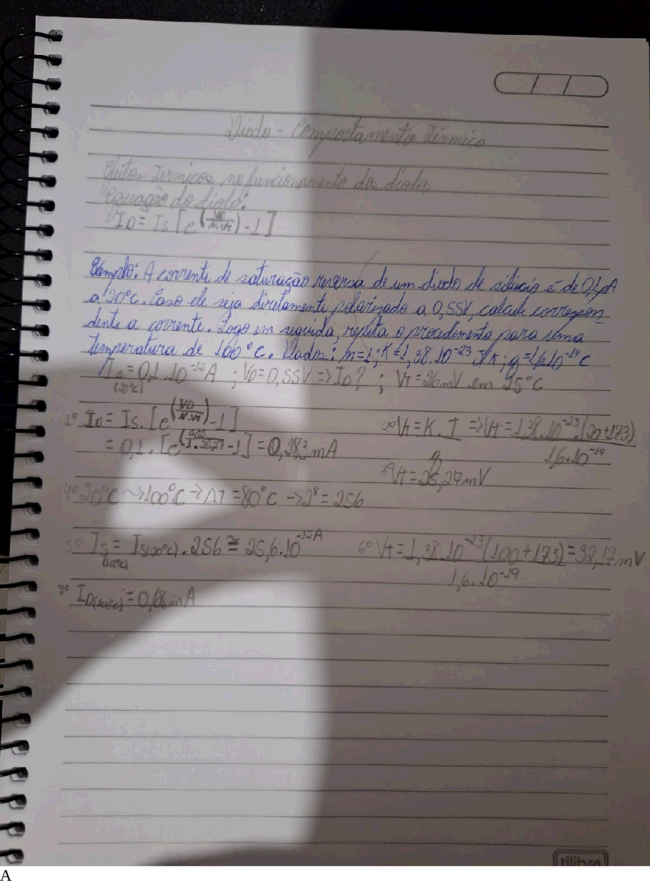 Diodo - Comportamento Térmico
Efeitos Térmicos no funcionamento dos diodos
Equação do diodo:
ID = IS [e^(VD/n.VT) - 1]
Exemplo: A corrente de saturação reversa de um diodo de silício é de 0,1pA
a 20°C. Caso ele seja diretamente polarizado a 0,55V, calcule correspon-
dente a corrente. Logo em seguida, repita o procedimento para uma
temperatura de 100°C. Dados: n=1; K=1,38.10^-23 J/K; q=1,6.10^-19 C
= 0,1.10^-12 A ; VD=0,55V => ID? ; VT=26mV em 25°C
(20°C)
1º ID = IS.[e^(VD/n.VT) - 1]
2º VT = K.T/q => VT = 1,38.10^-23.(20+273)/1,6.10^-19
= 0,1.[e^(0,55/1.25,27) - 1] = 0,283mA
3º VT = 25,27mV
4º 20°C ~> 100°C -> ΔT = 80°C -> 2^8 = 256
5º IS(100°C) = IS(20°C).256 ≅ 25,6.10^-12 A
6º VT = 1,38.10^-23(100+173)/1,6.10^-19 = 32,17mV
7º ID(100°C) = 0,68mA
tilibra
A